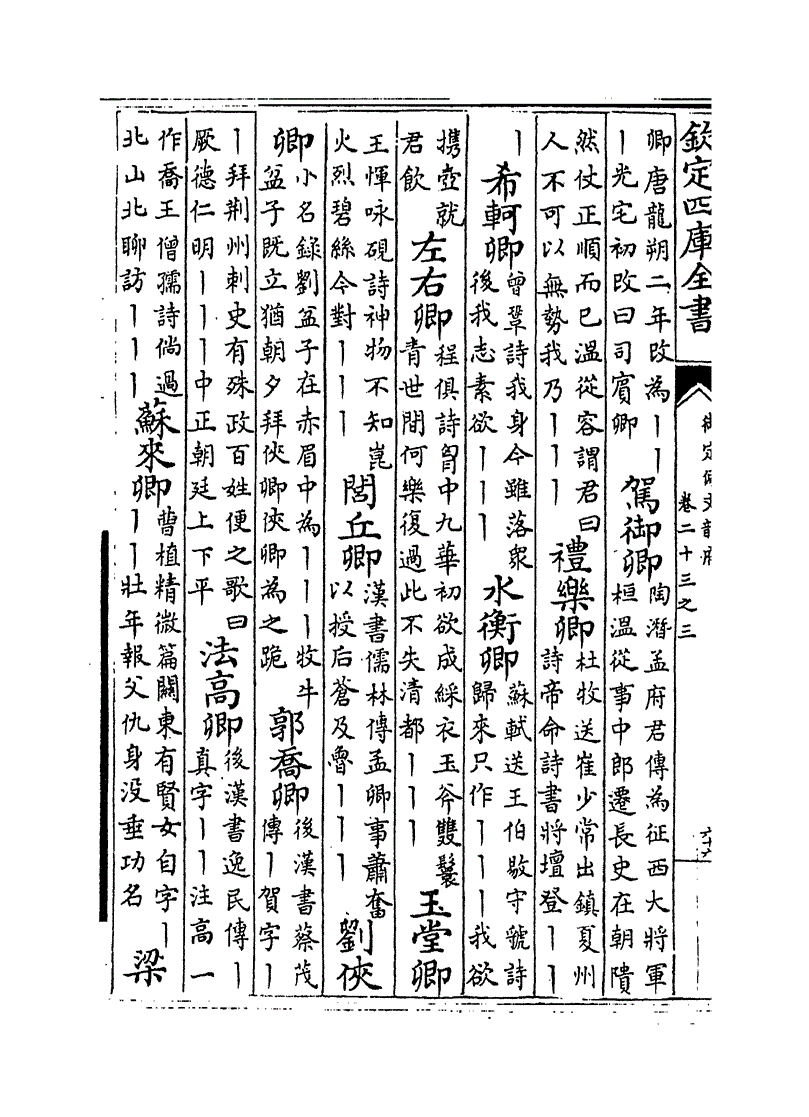 欽定四庫全書
御定佩文韻府
卷二十三之三
卿唐龍朔二年改為｜｜
｜光宅初改曰司賓卿
駕御卿
陶潛孟府君傳為征西大將軍
桓溫從事中郎遷長史在朝隤
然仗正順而已溫從容謂君曰
人不可以無勢我乃｜｜｜
禮樂卿
杜牧送崔少常出鎮夏州
詩帝命詩書將壇登｜｜
｜
希軻卿
曾鞏詩我身今雖落衆
後我志素欲｜｜｜
水衡卿
蘇軾送王伯敭守虢詩
歸來只作｜｜｜我欲
攜壺就
君飲
左右卿
程俱詩胷中九華初欲成綵衣玉斧雙鬟
青世間何樂復過此不失清都｜｜｜
玉堂卿
王惲咏硯詩神物不知崑
火烈碧絲今對｜｜｜
閭丘卿
漢書儒林傳孟卿事蕭奮
以授后蒼及魯｜｜｜
劉俠
卿
小名錄劉盆子在赤眉中為｜｜｜牧牛
盆子既立猶朝夕拜俠卿俠卿為之跪
郭喬卿
後漢書蔡茂
傳｜賀字｜
｜拜荆州刺史有殊政百姓便之歌曰
厥德仁明｜｜｜中正朝廷上下平
法高卿
後漢書逸民傳｜
真字｜｜注高一
作喬王僧孺詩倘過
北山北聊訪｜｜｜
蘇來卿
曹植精微篇關東有賢女自字｜
｜｜壯年報父仇身没垂功名
梁